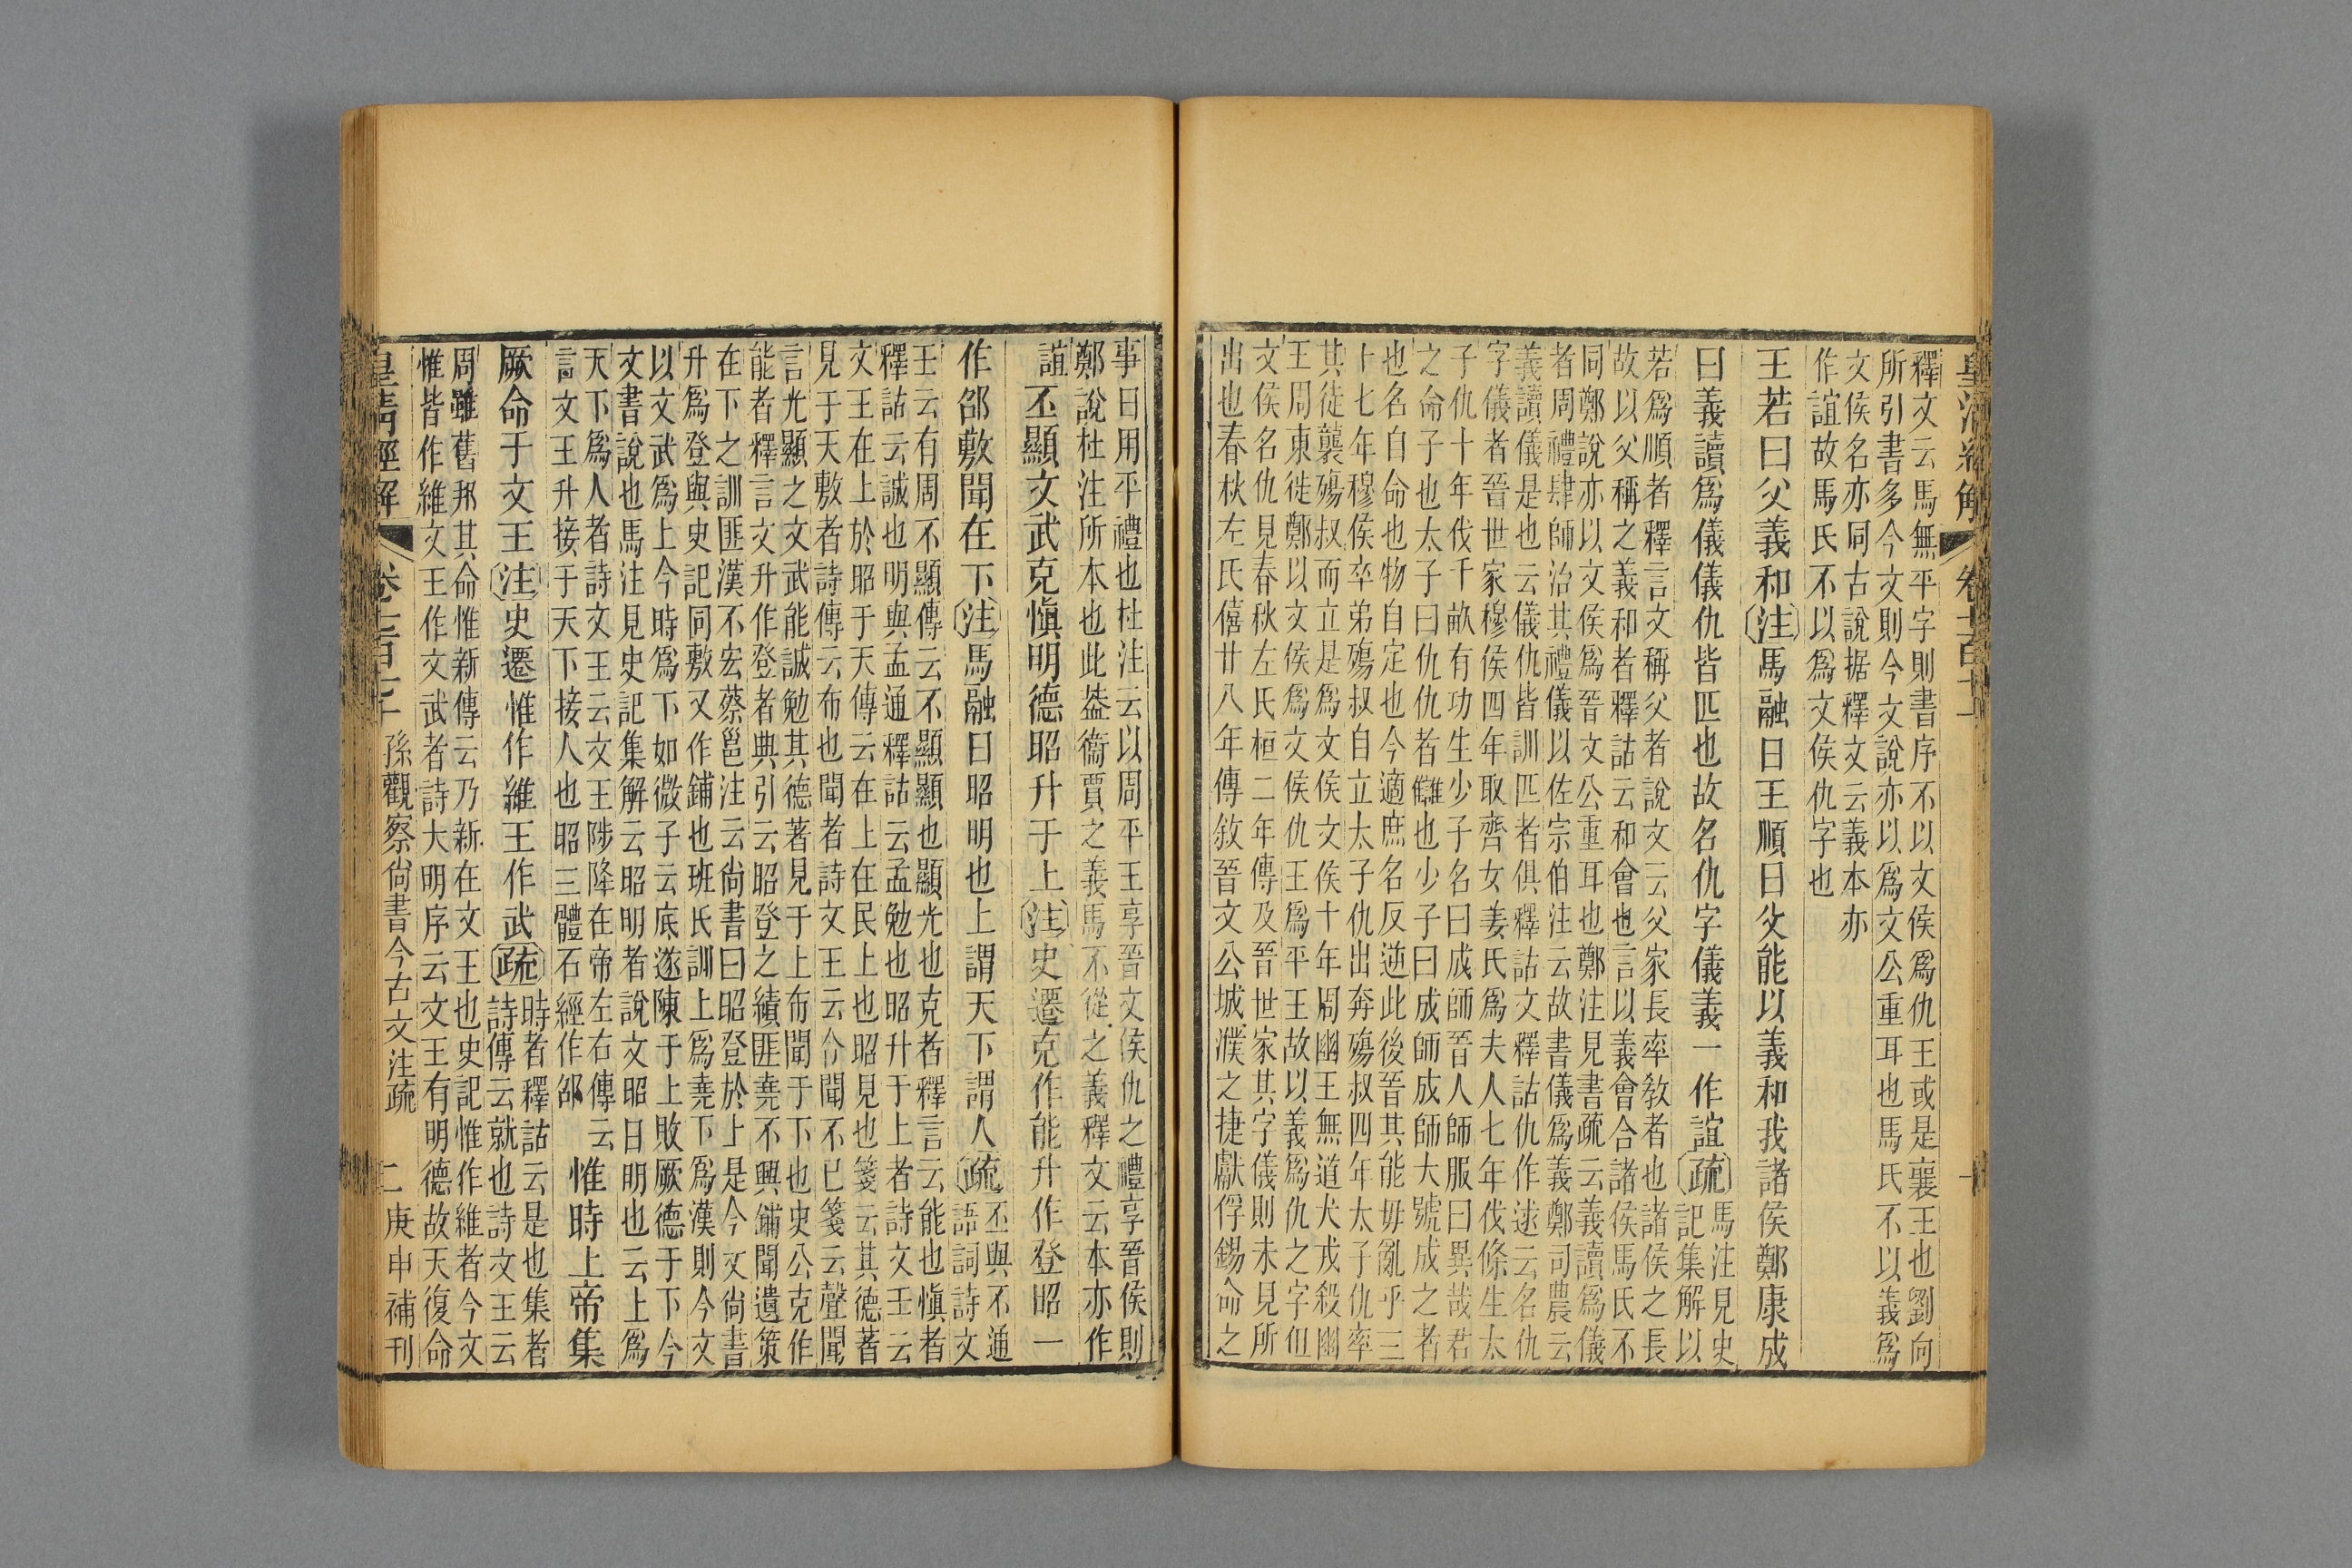 皇清經解
釋文云馬無平字則書序不以文侯爲仇王或是襄王也劉向
所引書多今文則今文說亦以爲文公重耳也馬氏不以義爲
文侯名亦同古說据釋文云義本亦
作誼故馬氏不以爲文侯仇字也
王若曰父義和注馬融曰王順曰父能以義和我諸侯鄭康成
曰義讀爲儀儀仇皆匹也故名仇字儀義一作誼疏
馬注見史
記集解以
若爲順者釋言文稱父者說文云父家長率敎者也諸侯之長
故以父稱之義和者釋詁云和會也言以義會合諸侯馬氏不
同鄭說亦以文侯爲晉文公重耳也鄭注見書疏云義讀爲儀
者周禮肆師治其禮儀以佐宗伯注云故書儀爲義鄭司農云
義讀儀是也云儀仇皆訓匹者俱釋詁文釋詁仇作逑云名仇
字儀者晉世家穆侯四年取齊女姜氏爲夫人七年伐條生太
子仇十年伐千畝有功生少子名曰成師晉人師服曰異哉君
之命子也太子曰仇仇者讎也少子曰成師成師大號成之者
也名自命也物自定也今適庶名反逆此後晉其能毋亂乎三
十七年穆侯卒弟殤叔自立太子仇出奔殤叔四年太子仇率
其徒襲殤叔而立是爲文侯文侯十年周幽王無道犬戎殺幽
王周東徙鄭以文侯爲文侯仇王爲平王故以義爲仇之字但
文侯名仇見春秋左氏桓二年傳及晉世家其字儀則未見所
出也春秋左氏僖廿八年傳敘晉文公城濮之捷獻俘錫命之
事曰用平禮也杜注云以周平王享晉文侯仇之禮享晉侯則
鄭說杜注所本也此葢衞賈之義馬不從之義釋文云本亦作
誼
丕顯文武克愼明德昭升于上注史遷克作能升作登昭一
作卲敷聞在下注馬融曰昭明也上謂天下謂人疏
丕與不通
語詞詩文
王云有周不顯傳云不顯顯也顯光也克者釋言云能也愼者
釋詁云誠也明與孟通釋詁云孟勉也昭升于上者詩文王云
文王在上於昭于天傳云在上在民上也昭見也箋云其德著
見于天敷者詩傳云布也聞者詩文王云令聞不已箋云聲聞
言光顯之文武能誠勉其德著見于上布聞于下也史公克作
能者釋言文升作登者典引云昭登之績匪堯不興鋪聞遺策
在下之訓匪漢不宏蔡邕注云尙書曰昭登於上是今文尙書
升爲登與史記同敷又作鋪也班氏訓上爲堯下爲漢則今文
以文武爲上今時爲下如微子云底遂陳于上敗厥德于下今
文書說也馬注見史記集解云昭明者說文昭日明也云上爲
天下爲人者詩文王云文王陟降在帝左右傳云
言文王升接于天下接人也昭三體石經作卲
惟時上帝集
厥命于文王注史遷惟作維王作武疏
時者釋詁云是也集者
詩傳云就也詩文王云
周雖舊邦其命惟新傳云乃新在文王也史記惟作維者今文
惟皆作維文王作文武者詩大明序云文王有明德故天復命
皇清經解 孫觀察尙書今古文注疏 二 庚申補刊